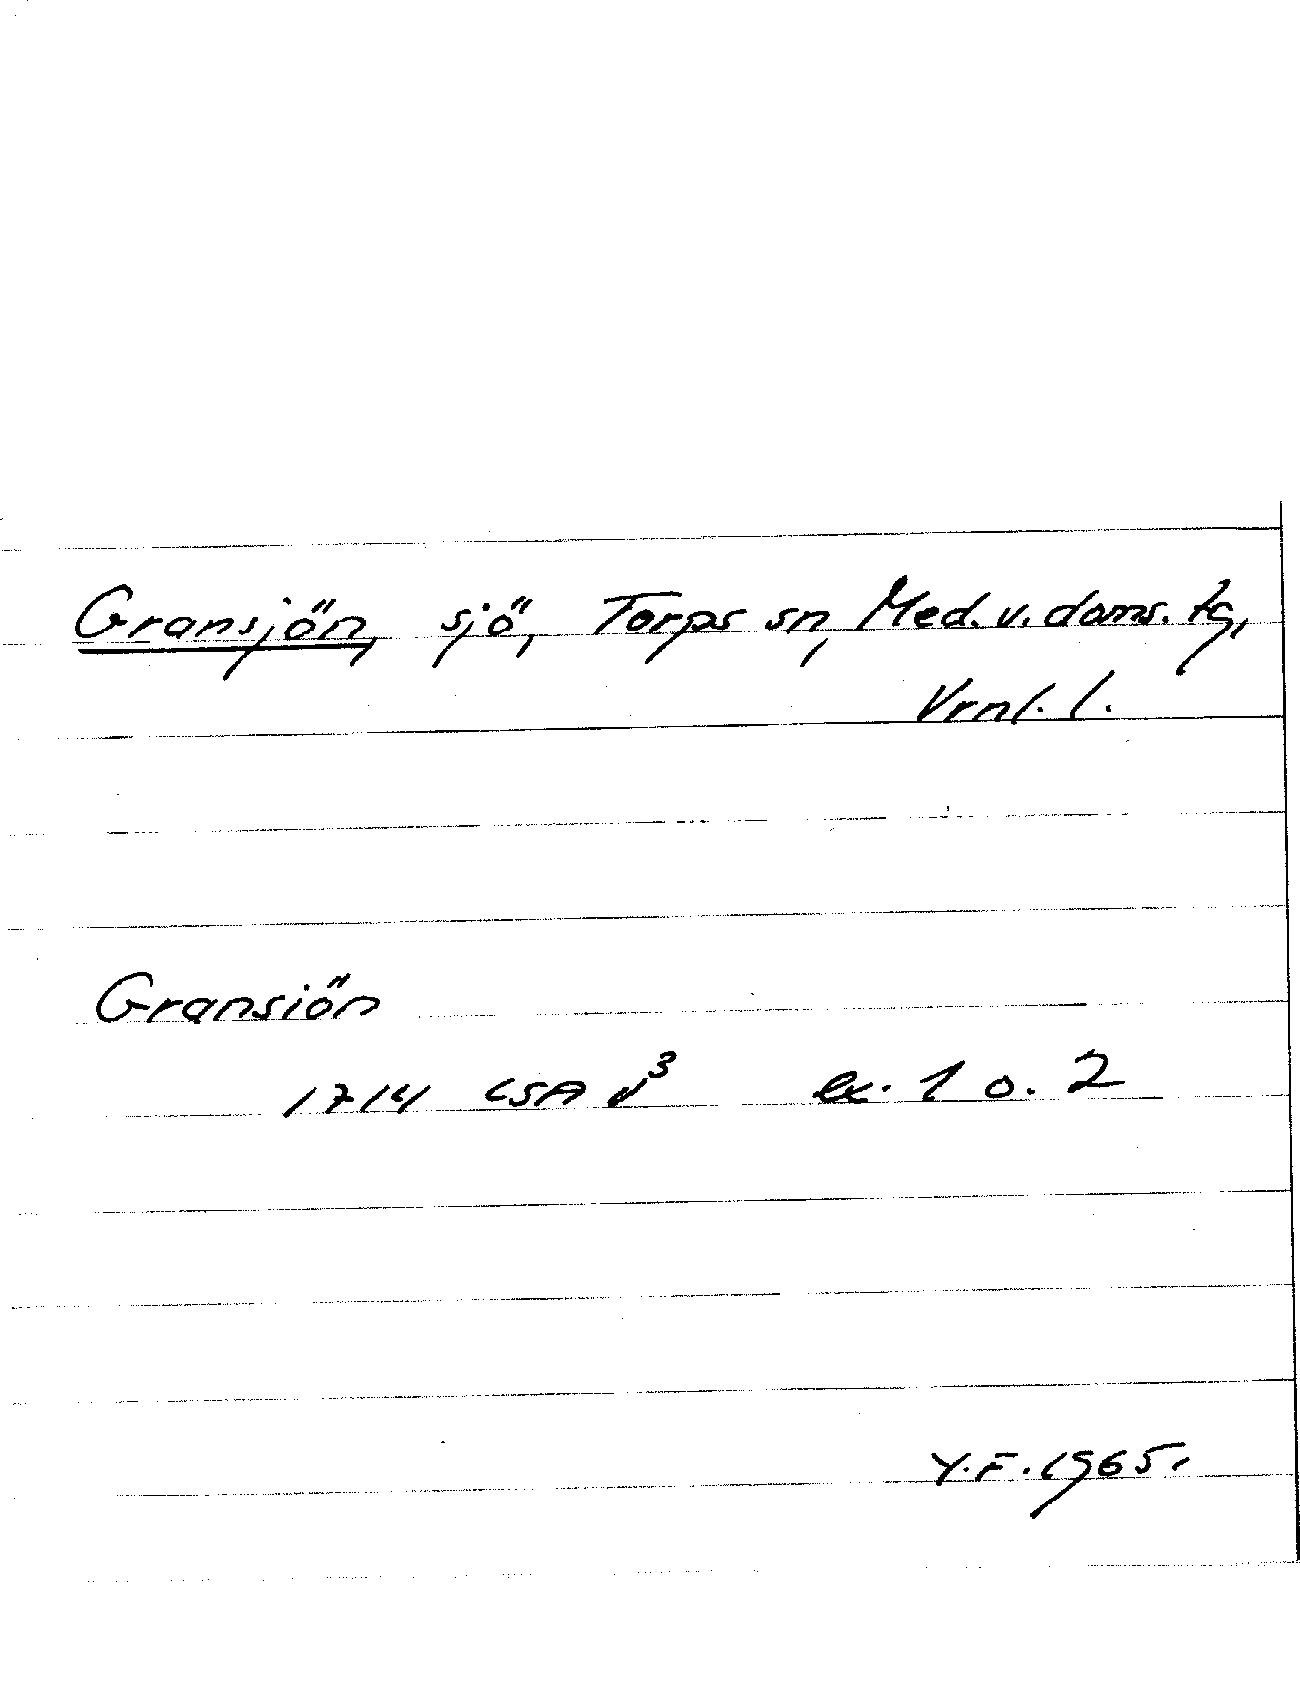 Gransjön, sjö, Torps sn, Med. v. doms. tg,
Vrnl. l.
Gransiön
1714 LSA v³ ex. 1 o. 2
Y.F. 1965.